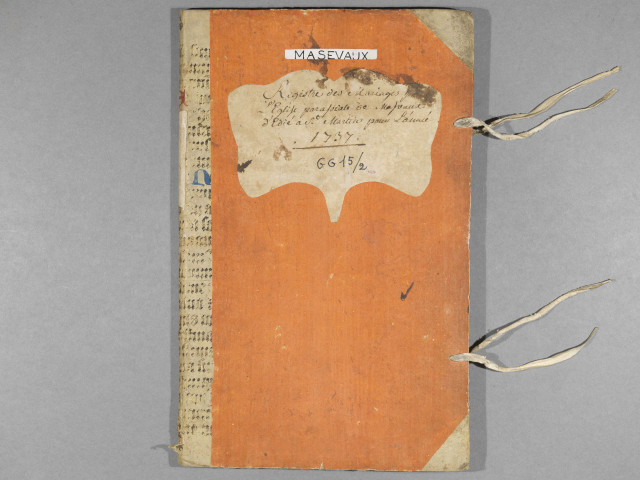 MASEVAUX
Registre des Mariages
l'Eglise paroissiale de Masevaux
Dedié a St Martin pour L'année
1737.
GG 15/2